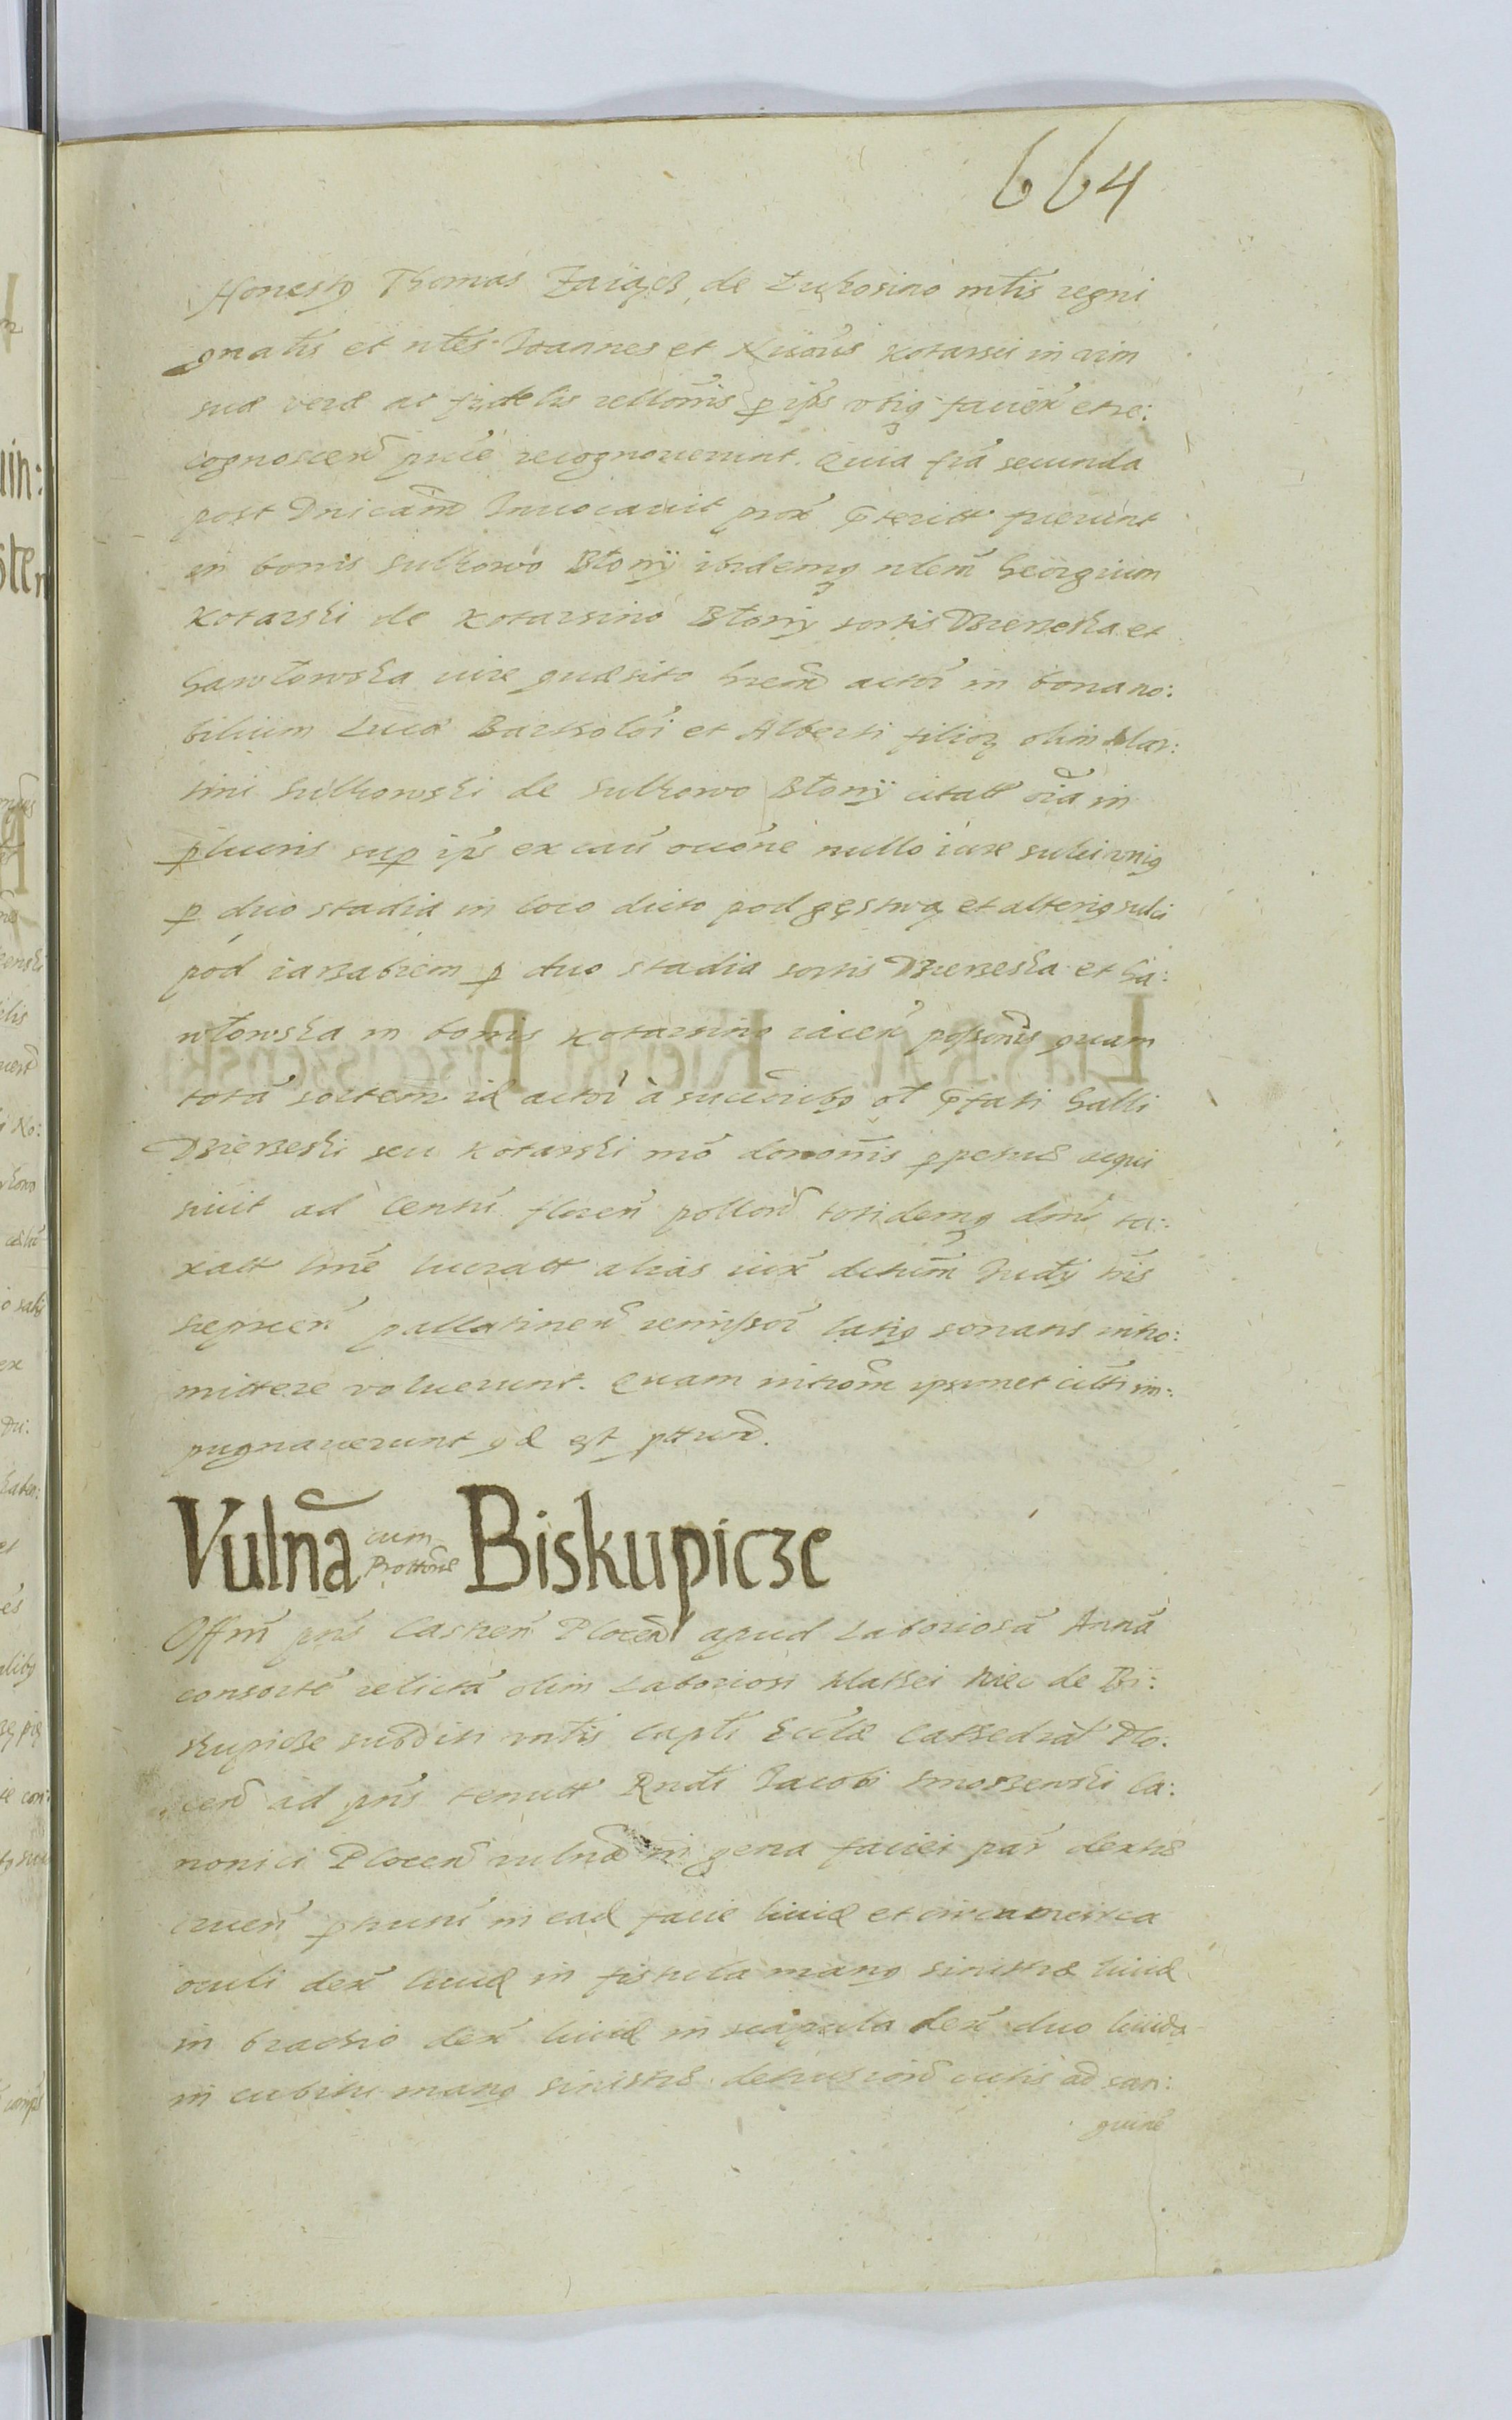 664
Honestꝯ Thomas Zaiącz de Łukosino mtis regni
gnalis et nles Ioannes et Kotarsci in vim
suæ veræ ac fidelis rellonis ꝑ ipsꝯ facien et re:
cognoscen recognoverunt. Quia fria secunda
post Dnicam Invocavit prox preteritt fuerunt
in bonis Sulkowo Błonÿ ibidemqꝫ nlem Georgium
Kotarski de Kotarsino Błonÿ sortis Dzierzeska et
Gawłowska iure quæsito hæred actor in bona no:
bilium Lucæ Bartholoi et Alberti filioꝝ olim Mar:
tini Sulkowski de Sulkowo Błonÿ citatt oia in
ꝑ duo stadia in loco dicto pod gęstwą et alteriꝯ sulci
pod iarzabiem ꝑ duo stadia sortis Dzierzeska et Ga:
włowska in bonis Kotarsino iacen possonis quam
totā sortem id actor à successoribꝯ ol prefati Galli
Dzierzeski seu Kotarski mō donōnis perpetuæ acqui
sivit ad Centū floren pollon totidemqꝫ dmi ta:
xatt lucratt alias iux decretum Iudÿ tris
pallatinen remissor latiꝯ sonans intro:
mittere voluerunt. Quam intrōm ipsimet citti im:
pugnaverunt qd est
Vulna cum
Prottōne Biskupicze
Offm pns Castren Plocen apud Laboriosā Annā
consortē relictā olim Laboriosi Mathei Kiec de Bi:
skupicze subditi vntis Capli Ecclæ Cathedral Plo:
cen ad pns tenutt Rndi Iacobi Smoszewski Ca:
nonici Plocen vulnꝰ in gena faciei par dextræ
cruen in ead facie livid et circumcirca
oculi dex livid in fistula manꝯ sinistræ livid
in brachio dex livid in scapula dex duo livida
in cubitu manꝯ sinistræ detrusion cutis ad san:
guinē